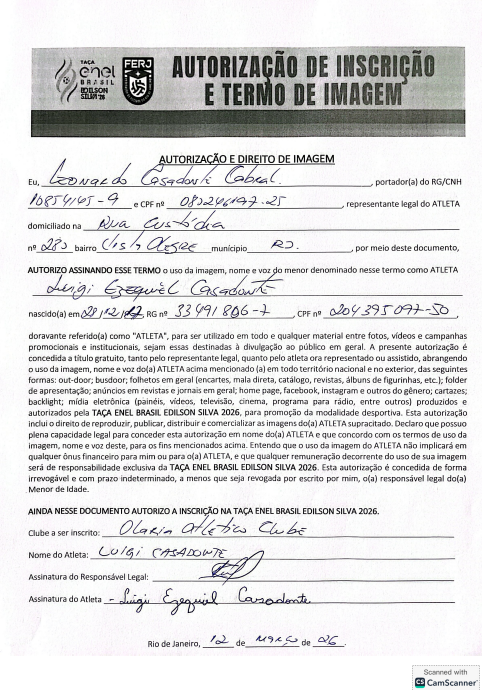 TAÇA
enel
BRASIL
EDILSON
SILVA'26
FERJ
AUTORIZAÇÃO DE INSCRIÇÃO
E TERMO DE IMAGEM
AUTORIZAÇÃO E DIREITO DE IMAGEM
Eu, Leonardo Casadonte Cabral. , portador(a) do RG/CNH
10854165-9 e CPF nº 083246197-25 , representante legal do ATLETA
domiciliado na Rua Custódia
nº 280 bairro Vista Alegre município RJ. , por meio deste documento,
AUTORIZO ASSINANDO ESSE TERMO o uso da imagem, nome e voz do menor denominado nesse termo como ATLETA
Luigi Ezequiel Casadonte
nascido(a) em , RG nº 33491806-7 , CPF nº 204395097-50 ,
doravante referido(a) como "ATLETA", para ser utilizado em todo e qualquer material entre fotos, vídeos e campanhas
promocionais e institucionais, sejam essas destinadas à divulgação ao público em geral. A presente autorização é
concedida a título gratuito, tanto pelo representante legal, quanto pelo atleta ora representado ou assistido, abrangendo
o uso da imagem, nome e voz do(a) ATLETA acima mencionado (a) em todo território nacional e no exterior, das seguintes
formas: out-door; busdoor; folhetos em geral (encartes, mala direta, catálogo, revistas, álbuns de figurinha, etc.); folder
de apresentação; anúncios em revistas e jornais em geral; home page, facebook, instagram e outros do gênero; cartazes;
backlight; mídia eletrônica (painéis, vídeos, televisão, cinema, programa para rádio, entre outros) produzidos e
autorizados pela TAÇA ENEL BRASIL EDILSON SILVA 2026, para promoção da modalidade desportiva. Esta autorização
inclui o direito de reproduzir, publicar, distribuir e comercializar as imagens do(a) ATLETA supracitado. Declaro que possuo
plena capacidade legal para conceder esta autorização em nome do(a) ATLETA e que concordo com os termos de uso da
imagem, nome e voz deste, para os fins mencionados acima. Entendo que o uso da imagem do ATLETA não implicará em
qualquer ônus financeiro para mim ou para o(a) ATLETA, e que qualquer remuneração decorrente do uso de sua imagem
será de responsabilidade exclusiva da TAÇA ENEL BRASIL EDILSON SILVA 2026. Esta autorização é concedida de forma
irrevogável e com prazo indeterminado, a menos que seja revogada por escrito por mim, o(a) responsável legal do(a)
Menor de Idade.
AINDA NESSE DOCUMENTO AUTORIZO A INSCRIÇÃO NA TAÇA ENEL BRASIL EDILSON SILVA 2026.
Clube a ser inscrito: Olaria Atletico Clube
Nome do Atleta: Luigi Casadonte
Assinatura do Responsável Legal:
Assinatura do Atleta - Luigi Ezequiel Casadonte
Rio de Janeiro, 12 de Março de 26.
Scanned with
CS CamScanner